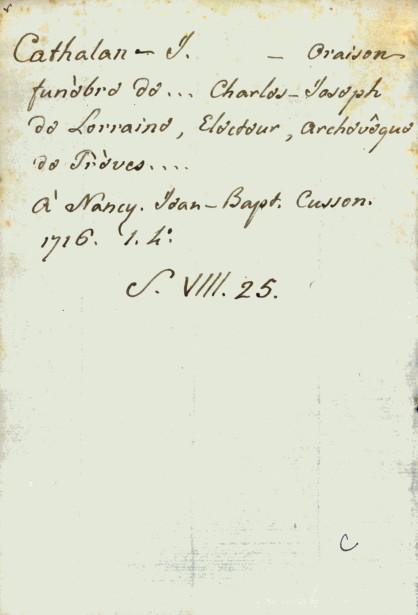 Cathalan - J. - Oraison
funèbre de ... Charles-Joseph
de Lorraine, Electeur, archevêque
de Trèves....
A Nancy. Jean-Bapt. Cusson.
1716. 1. 4º.
S. VIII. 25.
C